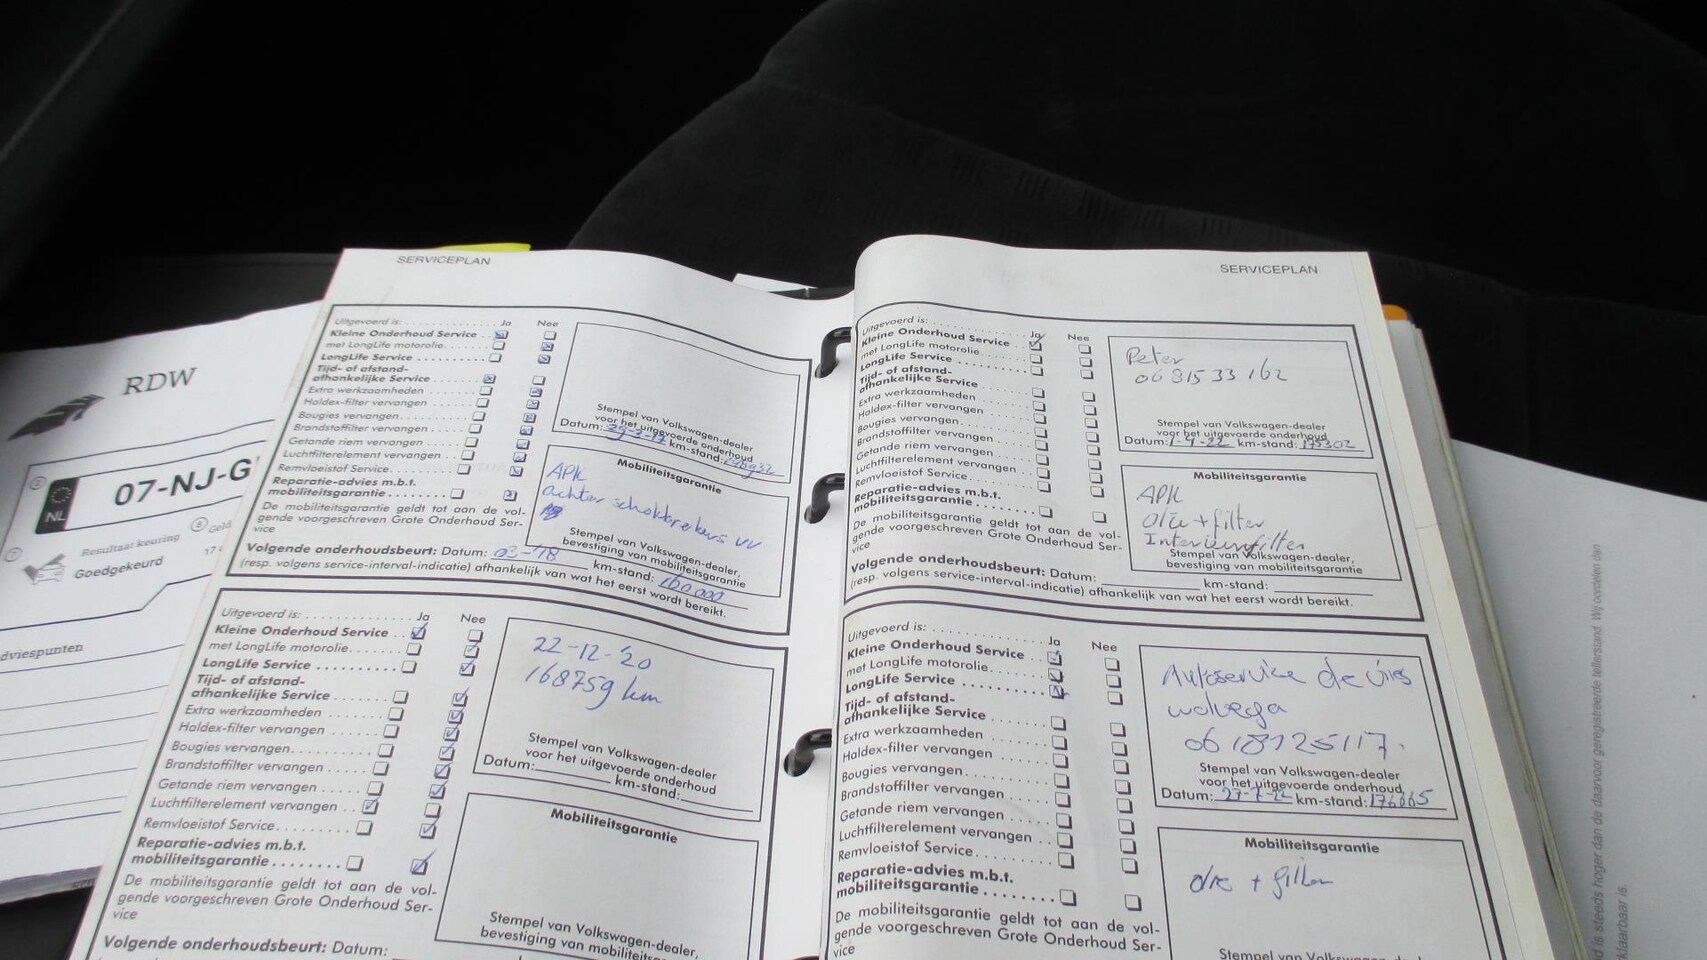 RDW
07-NJ-G
NL
Resultaat keuring
Goedgekeurd
Geld
dviespunten
SERVICEPLAN
Uitgevoerd is: Ja Nee
Kleine Onderhoud Service
met LongLife motorolie
LongLife Service
Tijd- of afstand-
afhankelijke Service
Extra werkzaamheden
Haldex-filter vervangen
Bougies vervangen
Brandstoffilter vervangen
Getande riem vervangen
Luchtfilterelement vervangen
Remvloeistof Service
Reparatie-advies m.b.t.
mobiliteitsgarantie
De mobiliteitsgarantie geldt tot aan de vol-
gende voorgeschreven Grote Onderhoud Ser-
vice
Volgende onderhoudsbeurt: Datum: 03-'18 km-stand: 160.000
(resp. volgens service-interval-indicatie) afhankelijk van wat het eerst wordt bereikt.
Stempel van Volkswagen-dealer
voor het uitgevoerde onderhoud
Datum: km-stand:
Mobiliteitsgarantie
APK
achter schokbrekers vv
Stempel van Volkswagen-dealer,
bevestiging van mobiliteitsgarantie
Uitgevoerd is: Ja Nee
Kleine Onderhoud Service
met LongLife motorolie
LongLife Service
Tijd- of afstand-
afhankelijke Service
Extra werkzaamheden
Haldex-filter vervangen
Bougies vervangen
Brandstoffilter vervangen
Getande riem vervangen
Luchtfilterelement vervangen
Remvloeistof Service
Reparatie-advies m.b.t.
mobiliteitsgarantie
De mobiliteitsgarantie geldt tot aan de vol-
gende voorgeschreven Grote Onderhoud Ser-
vice
Volgende onderhoudsbeurt: Datum:
22-12-'20
168759 km
Stempel van Volkswagen-dealer
voor het uitgevoerde onderhoud
Datum: km-stand:
Mobiliteitsgarantie
Stempel van Volkswagen-dealer,
bevestiging van mobiliteitsgarantie
SERVICEPLAN
Uitgevoerd is: Ja Nee
Kleine Onderhoud Service
met LongLife motorolie
LongLife Service
Tijd- of afstand-
afhankelijke Service
Extra werkzaamheden
Haldex-filter vervangen
Bougies vervangen
Brandstoffilter vervangen
Getande riem vervangen
Luchtfilterelement vervangen
Remvloeistof Service
Reparatie-advies m.b.t.
mobiliteitsgarantie
De mobiliteitsgarantie geldt tot aan de vol-
gende voorgeschreven Grote Onderhoud Ser-
vice
Volgende onderhoudsbeurt: Datum: km-stand:
(resp. volgens service-interval-indicatie) afhankelijk van wat het eerst wordt bereikt.
Peter
0681533162
Stempel van Volkswagen-dealer
voor het uitgevoerde onderhoud
Datum: 1-4-22 km-stand: 175302
Mobiliteitsgarantie
APK
olie + filter
Interieurfilter
Stempel van Volkswagen-dealer,
bevestiging van mobiliteitsgarantie
Uitgevoerd is: Ja Nee
Kleine Onderhoud Service
met LongLife motorolie
LongLife Service
Tijd- of afstand-
afhankelijke Service
Extra werkzaamheden
Haldex-filter vervangen
Bougies vervangen
Brandstoffilter vervangen
Getande riem vervangen
Luchtfilterelement vervangen
Remvloeistof Service
Reparatie-advies m.b.t.
mobiliteitsgarantie
De mobiliteitsgarantie geldt tot aan de vol-
gende voorgeschreven Grote Onderhoud Ser-
vice
Autoservice de Vries
wolvega
0618925117.
Stempel van Volkswagen-dealer
voor het uitgevoerde onderhoud
Datum: km-stand: 176665
Mobiliteitsgarantie
olie + filter
Stempel van Volkswagen-dealer,
d is steeds hoger dan de daarvoor geregistreerde tellerstand. Wij oordelen dan
rklaarbaar is.